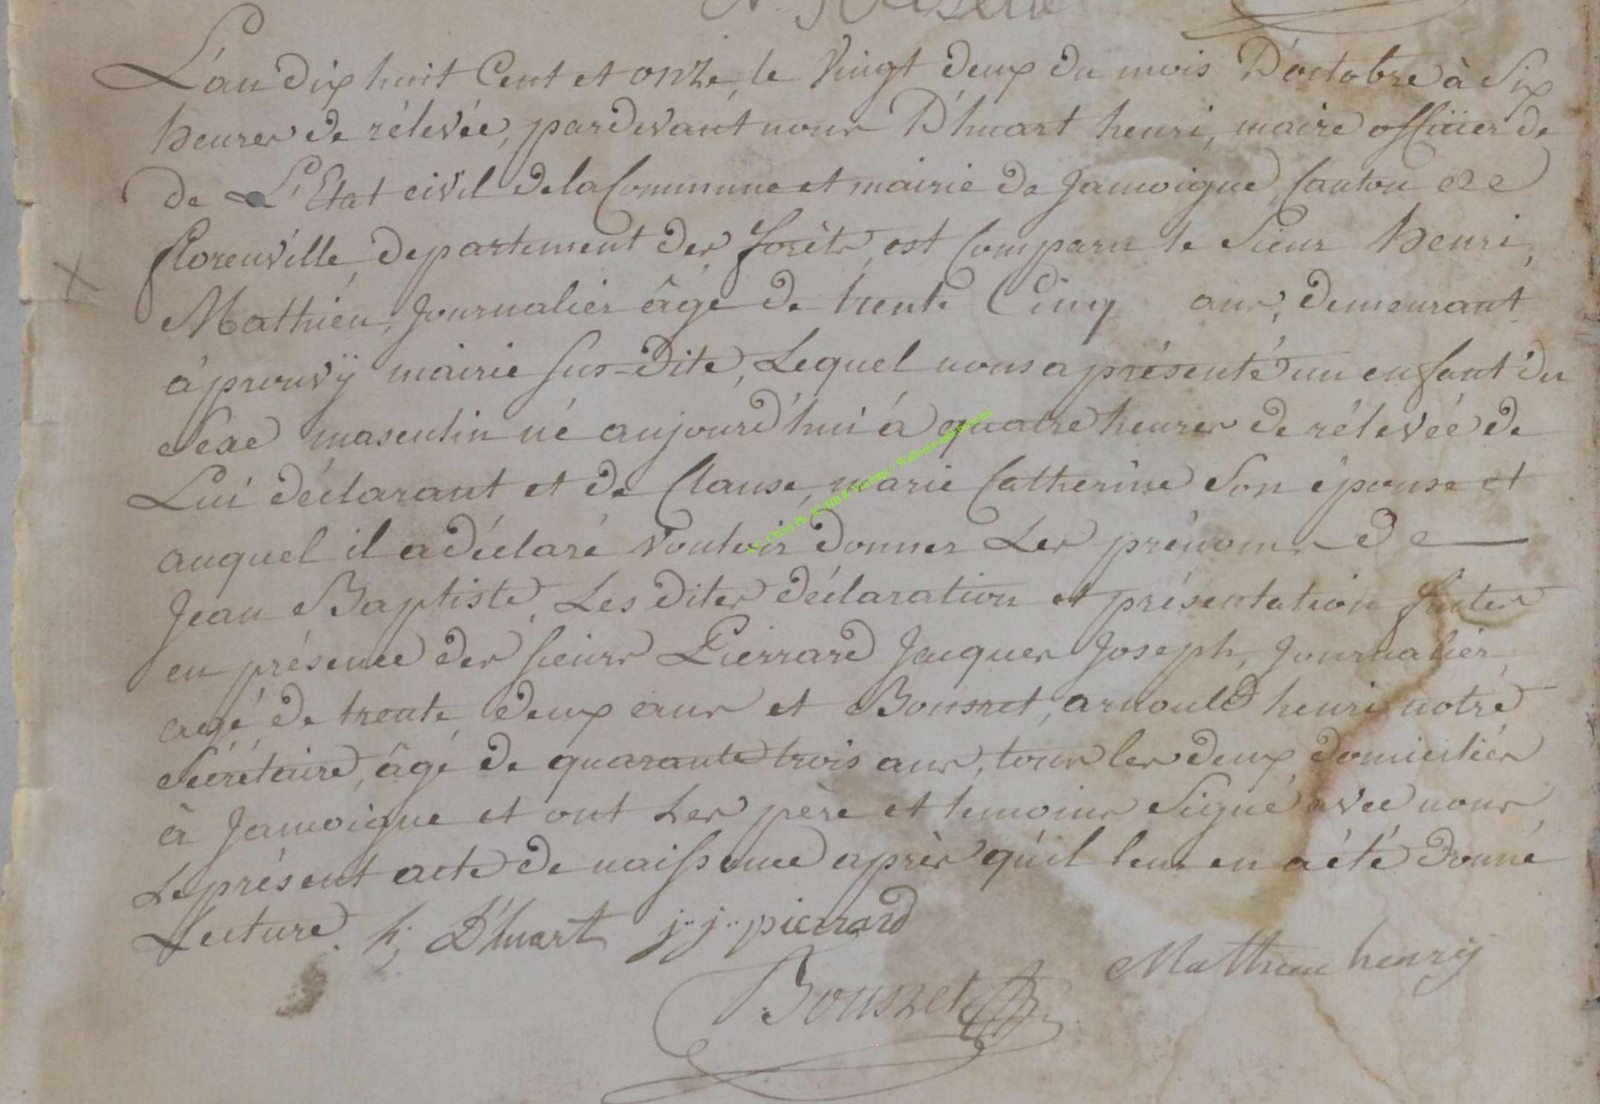 L'an dix huit Cent et onze, le Vingt deux du mois D'octobre à Six
heures de rélevée, pardevant nous D'huart henri, maire officier de
de L'Etat civil de la Commune et mairie de Jamoigne, Canton de
florenville, departement des forêts, est Comparu le Sieur henri,
Mathieu, Journalier âgé de trente Cinq ans, demeurant
à prouvÿ mairie sus-dite, Lequel nous a présenté un enfant du
Sexe masculin né aujourd'hui à quatre heures de rélevée de
Lui déclarant et de Clause, marie Catherine Son épouse et
auquel il a déclaré Vouloir donner Les prénoms de
Jean Baptiste, Les dites déclaration et présentation faites
en présence des sieurs Pierrard Jacques Joseph, Journalier,
agé de trente deux ans et Bousret, arnould henri notre
Sécrétaire, âgé de quarante trois ans, tous les deux domiciliés
à Jamoigne et ont Les père et temoins Signé avec nous
Le présent acte de naissance après qu'il leur en a été donné
Lecture. h; D'huart j..j.. pierrard
Mathieu henrÿ
Bousret